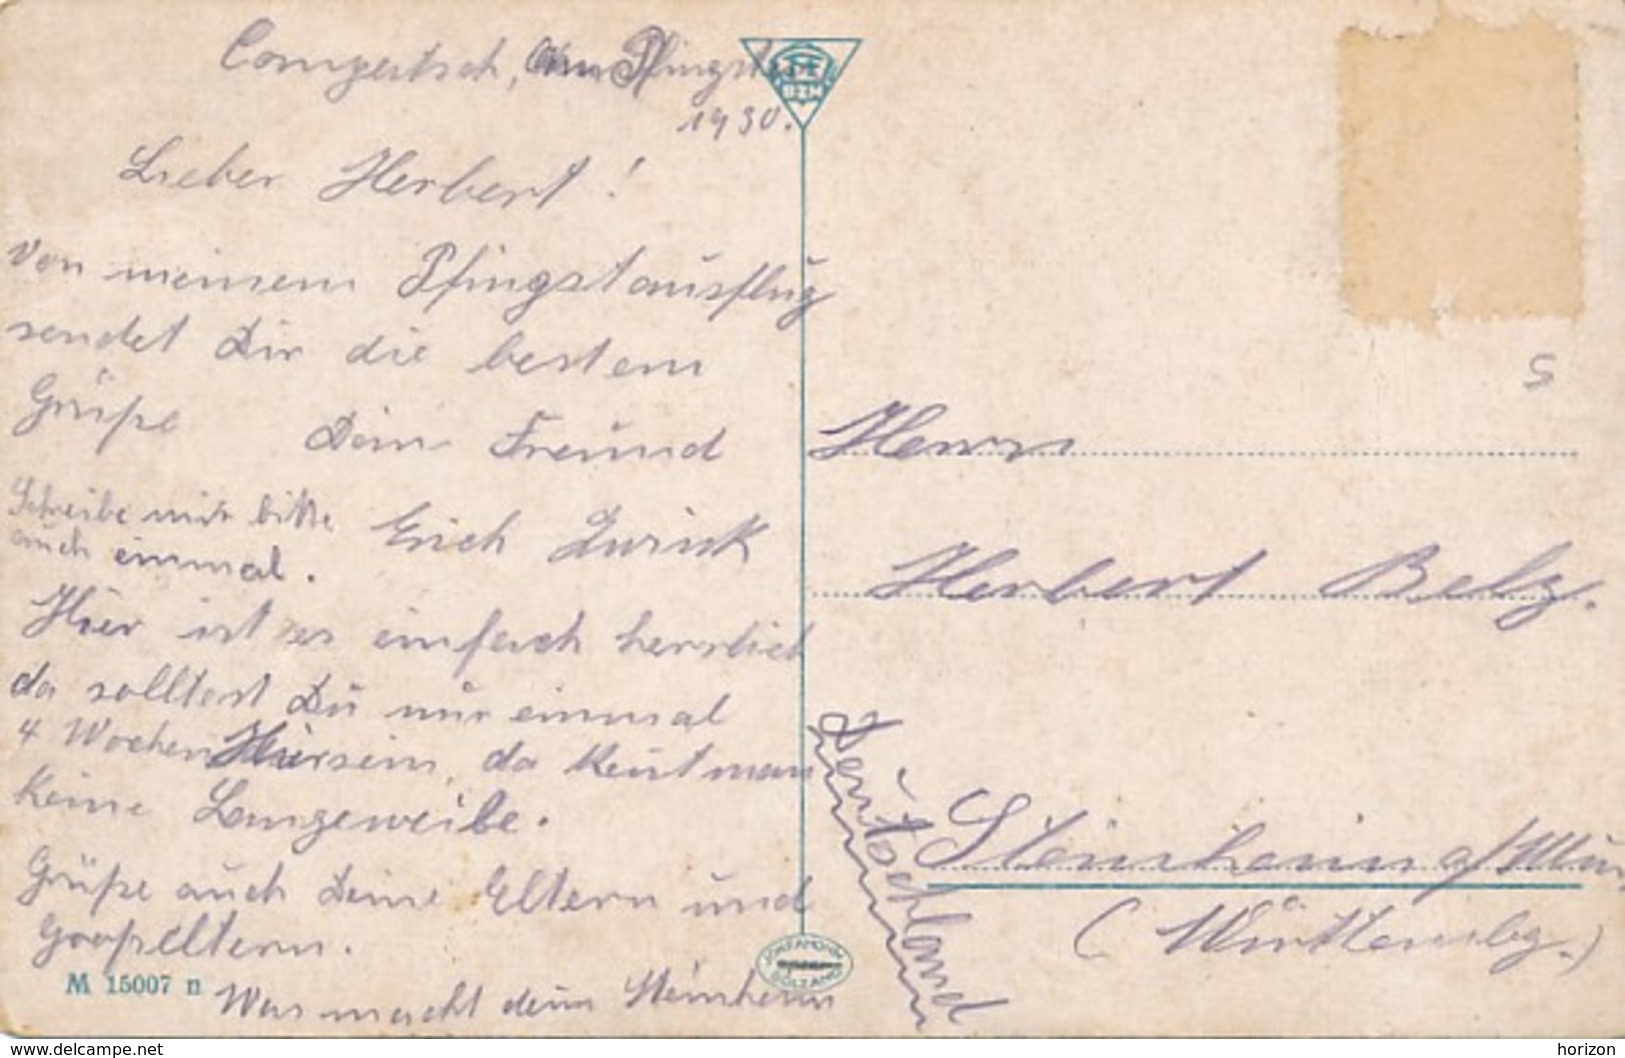 am Pfingsten
1930.
Lieber Herbert!
Von meinem Pfingstausflug
sendet Dir die besten
Grüße Dein Freund
Schreibe mir bitte Erich
auch einmal.
Hier ist es einfach herrlich
da solltest Du nur einmal
4 Wochen Hiersein, da kent man
keine Langeweile.
Grüße auch Deine Eltern und
Großeltern.
Was macht denn Steinheim
M 15007 n
BZM
BOLZANO
S
Herrn
Herbert Belz.
Steinheim a/Mur
(Württembg.)
Deutschland
www.delcampe.net
horizon